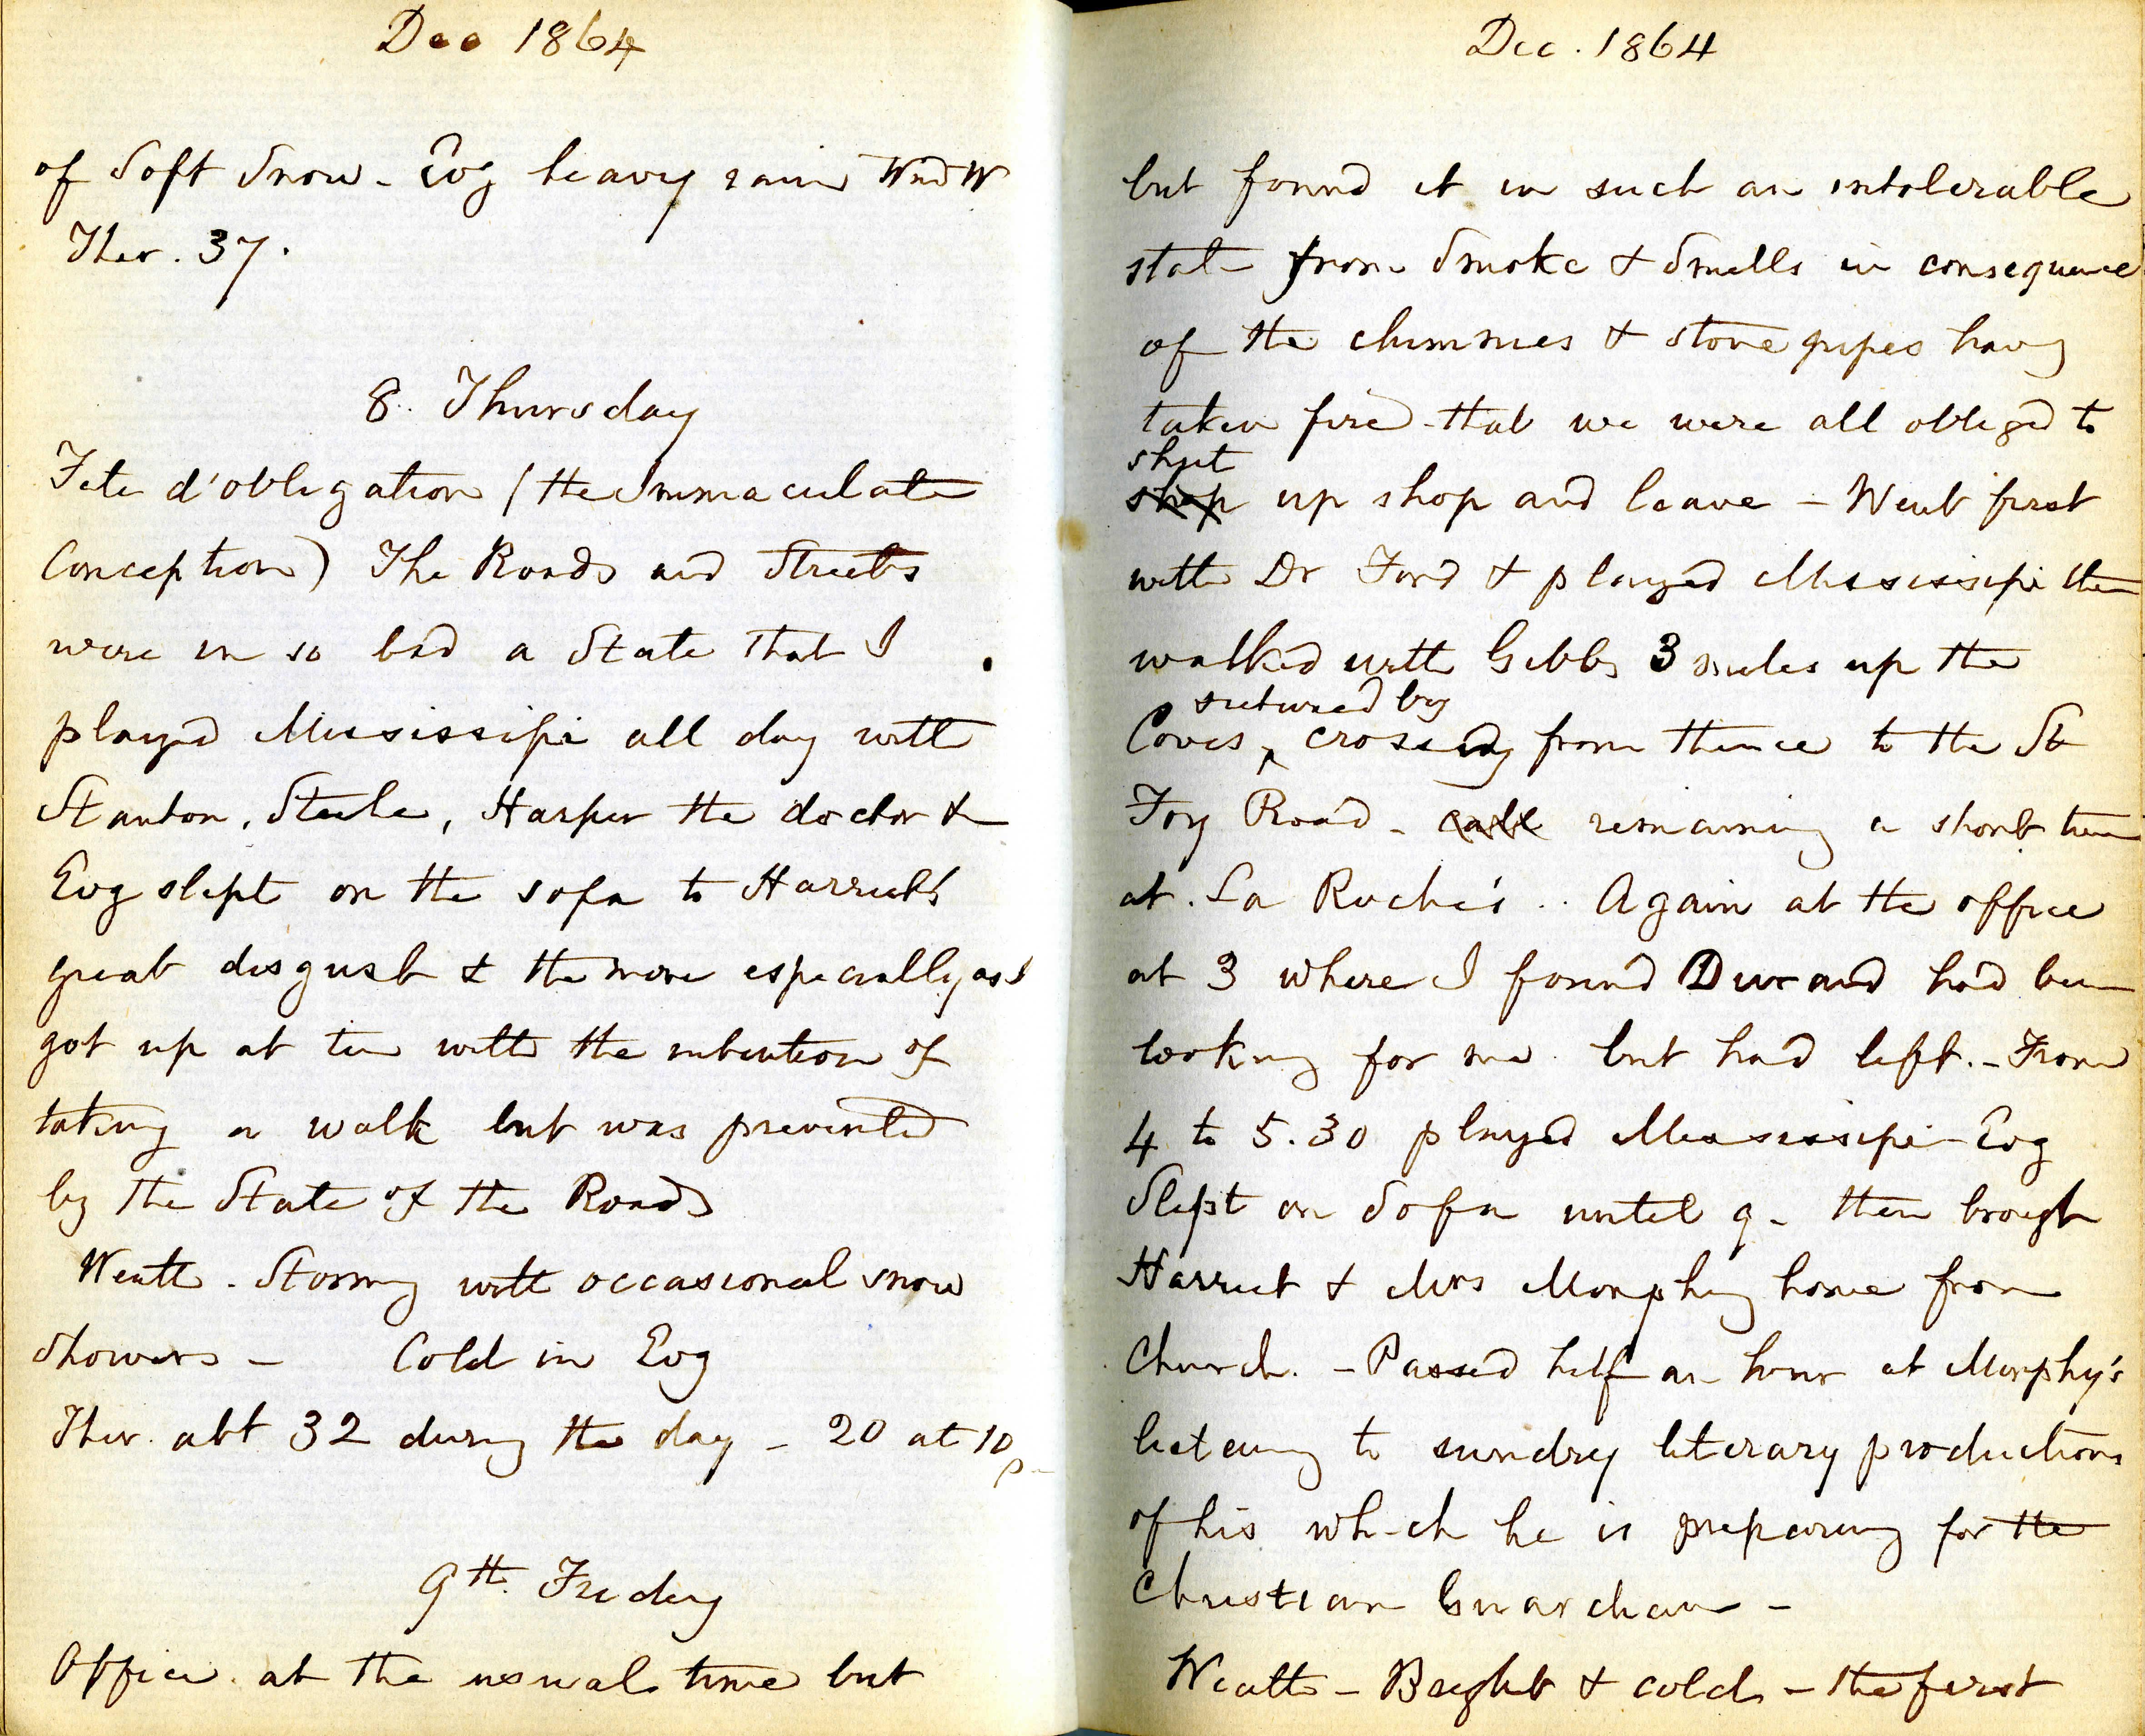 Dec 1864
of Soft Snow - Evg heavy rain Wnd W
Ther. 37.
8. Thursday
Fete d'obligation (the Immaculate
Conception) The Roads and Streets
were in so bad a State that I
played Mississipi all day with
Stanton, Steele, Harper the doctor &
Evg slept on the sofa to Harriet's
great disgust & the more especially as I
got up at ten with the intention of
taking a walk but was prevented
by the State of the Roads
Weath. Stormy with occasional snow
showers - Cold in Evg
Ther. abt 32 during the day - 20 at 10
9th. Friday
Office at the usual time but
Dec. 1864
but found it in such an intolerable
state from Smoke & Smells in consequence
of the chimnies & stove pipes havg
taken fire - that we were all obliged to
shut
shop up shop and leave - Went first
with Dr Ford & played Mississipi then
walked with Gibbs 3 miles up the
returned by
Coves ^ crossing from thence to the St
Foy Road - call remaining a short time
at La Roche's .. Again at the office
at 3 where I found Durand had been
looking for me but had left. - From
4 to 5.30 played Mississipi - Evg
Slept on Sofa until 9 - then brough
Harriet & Mrs Morphy home from
Church. - Passed half an hour at Morphy's
listening to sundry literary productions
of his which he is preparing for the
Christian Guardian -
Weath - Bright & cold - the first